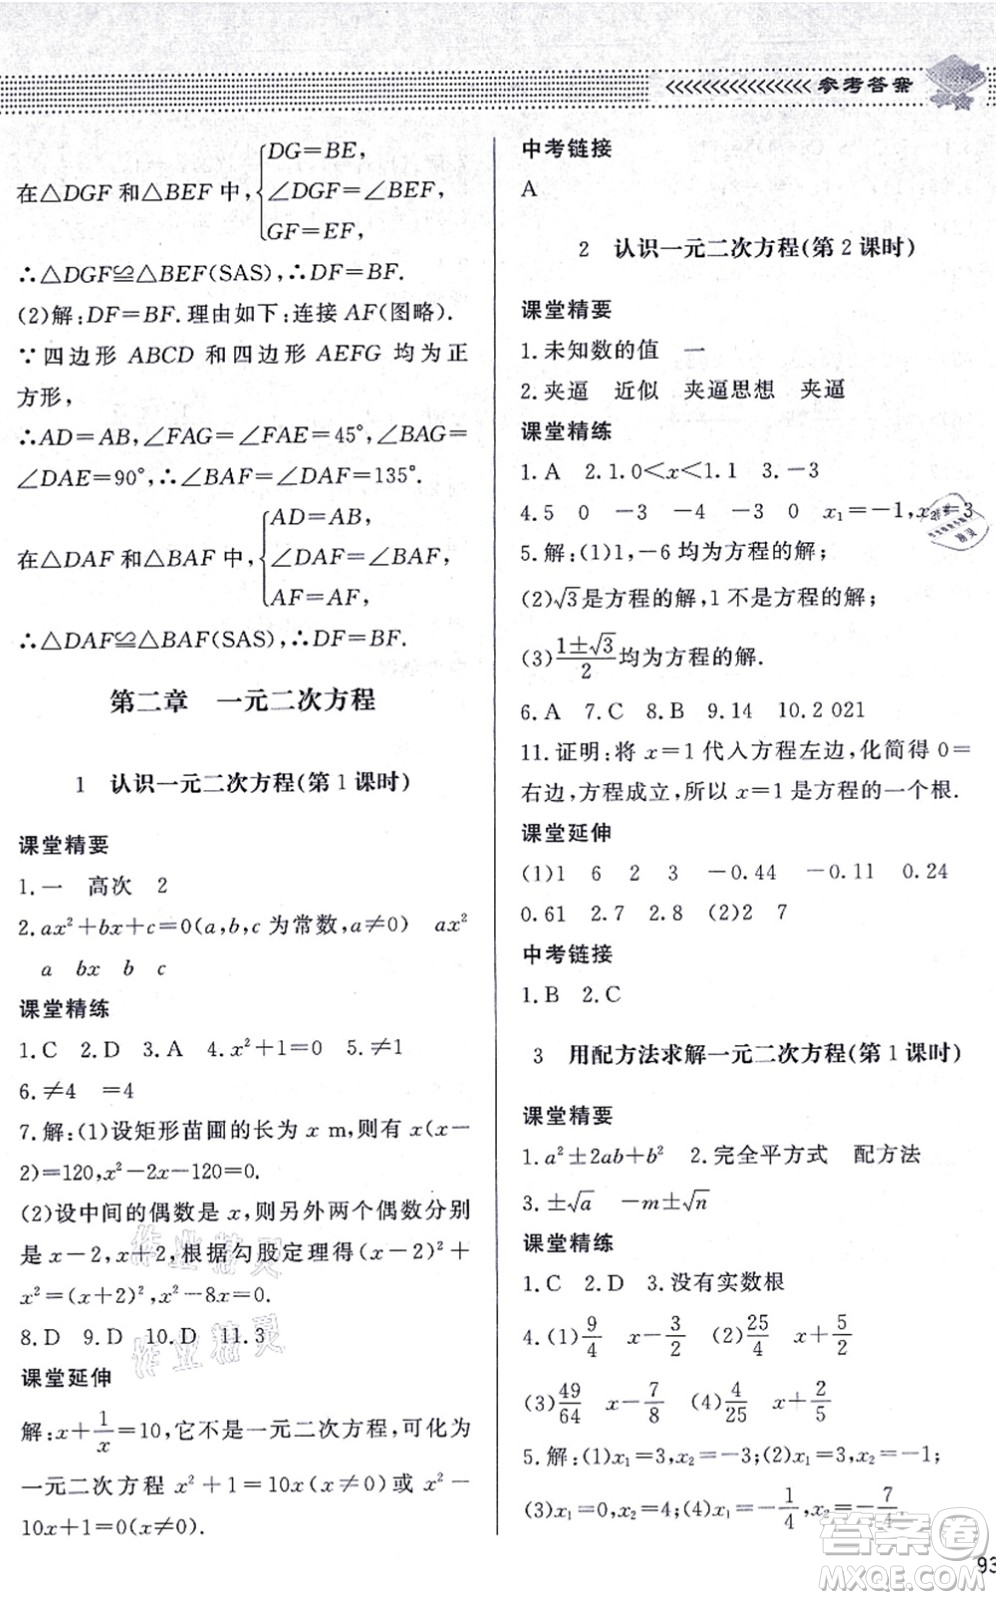 参考答案
在△DGF 和△BEF 中,{DG=BE,
∠DGF=∠BEF,
GF=EF,
∴△DGF≌△BEF(SAS),∴DF=BF.
(2)解:DF=BF.理由如下:连接 AF(图略).
∵四边形 ABCD 和四边形 AEFG 均为正
方形,
∴AD=AB,∠FAG=∠FAE=45°,∠BAG=
∠DAE=90°,∴∠BAF=∠DAF=135°.
在△DAF 和△BAF 中,{AD=AB,
∠DAF=∠BAF,
AF=AF,
∴△DAF≌△BAF(SAS),∴DF=BF.
第二章 一元二次方程
1 认识一元二次方程(第1课时)
课堂精要
1.一 高次 2
2.ax²+bx+c=0(a,b,c 为常数,a≠0) ax²
a bx b c
课堂精练
1.C 2.D 3.A 4.x²+1=0 5.≠1
6.≠4 =4
7.解:(1)设矩形苗圃的长为 x m,则有 x(x−
2)=120,x²−2x−120=0.
(2)设中间的偶数是 x,则另外两个偶数分别
是 x−2,x+2,根据勾股定理得(x−2)²+
x²=(x+2)²,x²−8x=0.
8.D 9.D 10.D 11.3
课堂延伸
解:x+1/x=10,它不是一元二次方程,可化为
一元二次方程 x²+1=10x(x≠0)或 x²−
10x+1=0(x≠0).
中考链接
A
2 认识一元二次方程(第2课时)
课堂精要
1.未知数的值 一
2.夹逼 近似 夹逼思想 夹逼
课堂精练
1.A 2.1.0<x<1.1 3.−3
4.5 0 −3 −4 −3 0 x₁=−1,x₂=3
5.解:(1)1,−6均为方程的解;
(2)√3是方程的解,1不是方程的解;
(3)(1±√3)/2均为方程的解.
6.A 7.C 8.B 9.14 10.2 021
11.证明:将 x=1代入方程左边,化简得0=
右边,方程成立,所以 x=1是方程的一个根.
课堂延伸
(1)1 6 2 3 −0.44 −0.11 0.24
0.61 2.7 2.8 (2)2 7
中考链接
1.B 2.C
3 用配方法求解一元二次方程(第1课时)
课堂精要
1.a²±2ab+b² 2.完全平方式 配方法
3.±√a −m±√n
课堂精练
1.C 2.D 3.没有实数根
4.(1)9/4 x−3/2 (2)25/4 x+5/2
(3)49/64 x−7/8 (4)4/25 x+2/5
5.解:(1)x₁=3,x₂=−3;(2)x₁=3,x₂=−1;
(3)x₁=0,x₂=4;(4)x₁=−1/4,x₂=−7/4.
93
作业精灵
作业精灵
答案卷
MXQE.COM